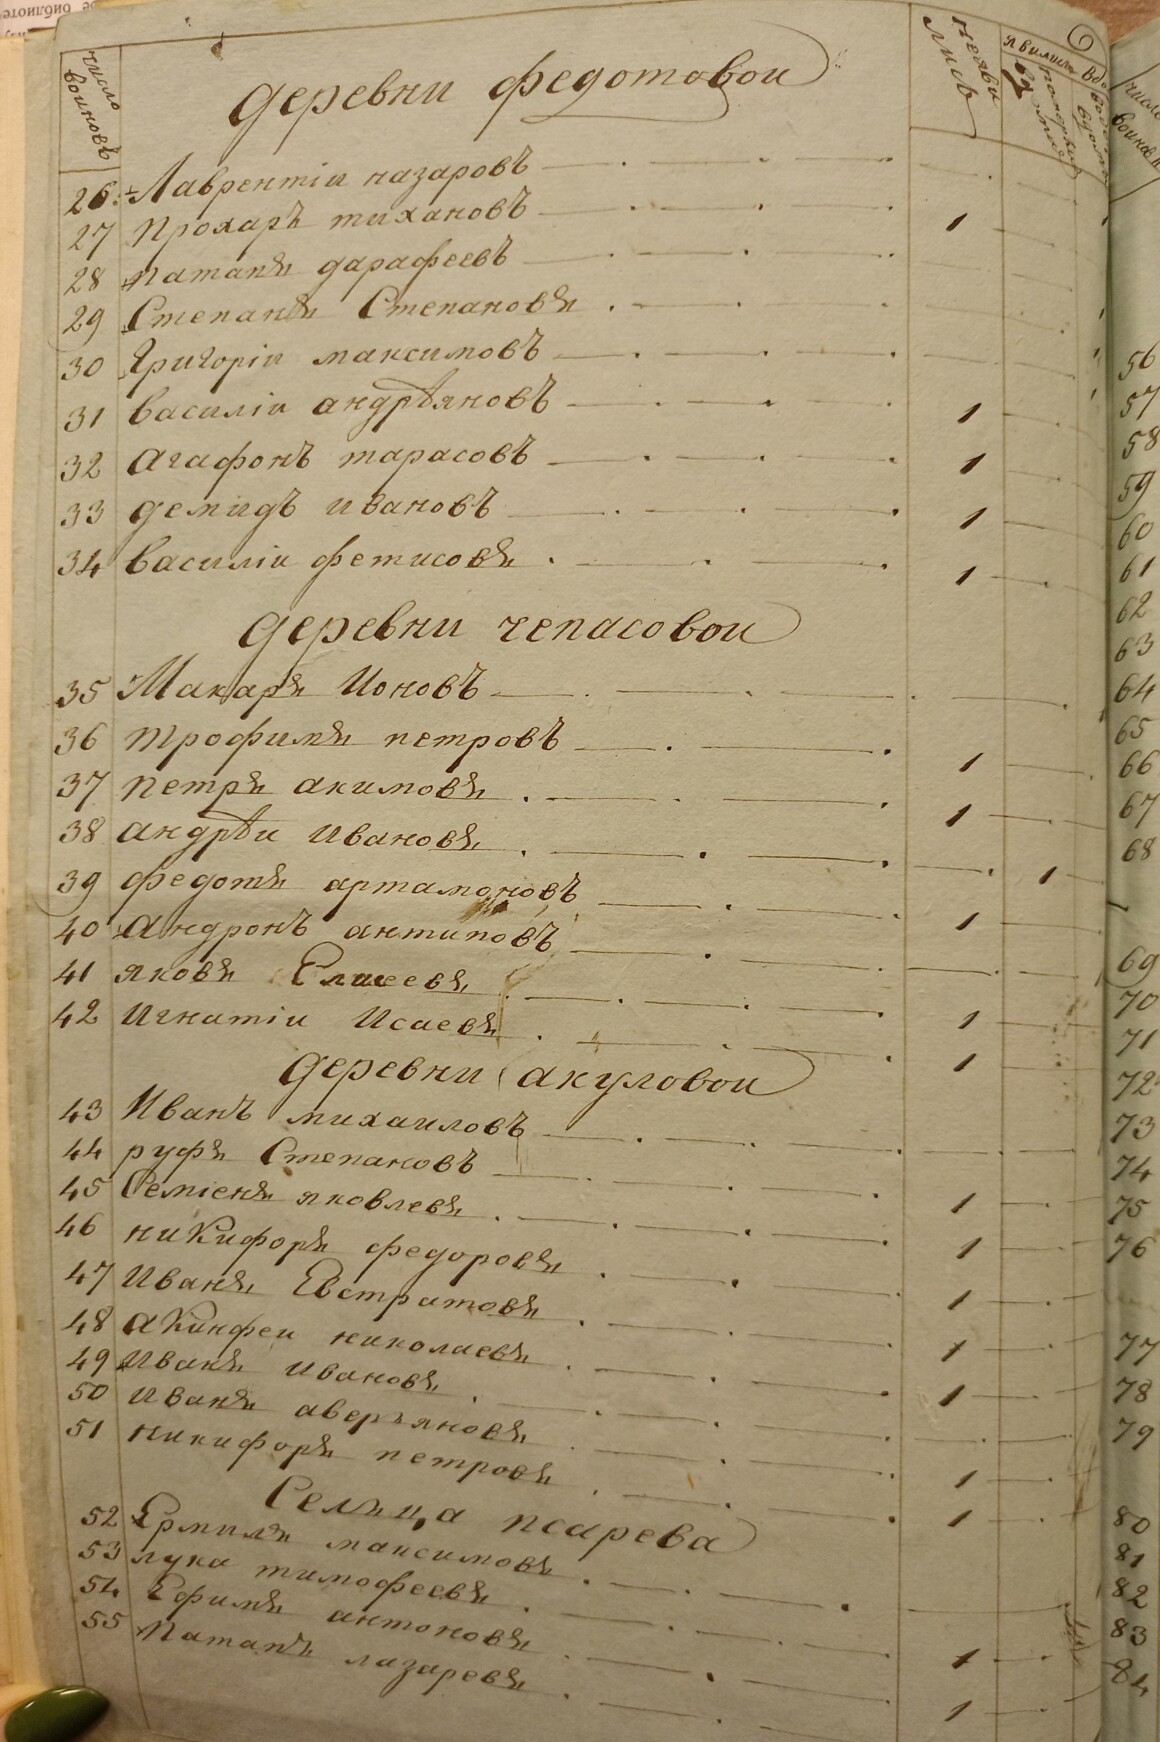 число воиновъ
неяви лисв
явилис
деревни федотовои
26 Лаврентiи назаровъ
27 прохаръ тихановъ 1
28 патапъ дарафеевъ
29 Степанъ Степановъ
30 Григорiи максимовъ
31 василiи андрѣяновъ 1
32 агафонъ тарасовъ 1
33 демидъ ивановъ 1
34 василiи фетисовъ 1
деревни чепасовои
35 Макаръ Ионовъ
36 трофимъ петровъ 1
37 петръ акимовъ 1
38 андрѣи Ивановъ 1
39 федотъ артамоновъ 1
40 андронъ антиповъ
41 яковъ Елисеевъ 1
42 Игнатiи Исаевъ 1
деревни акуловои
43 Иванъ михаиловъ
44 руфъ Степановъ 1
45 Семiенъ яковлевъ 1
46 никифоръ федоровъ 1
47 Иванъ Евстратовъ 1
48 акинфеи николаевъ 1
49 Иванъ ивановъ
50 иванъ аверъяновъ 1
51 никифоръ петровъ 1
Селъца псарева
52 Ермилъ максимовъ
53 лука тимофеевъ 1
54 Ефимъ антоновъ 1
55 Патапъ лазаревъ
число воиновъ
56
57
58
59
60
61
62
63
64
65
66
67
68
69
70
71
72
73
74
75
76
77
78
79
80
81
82
83
84